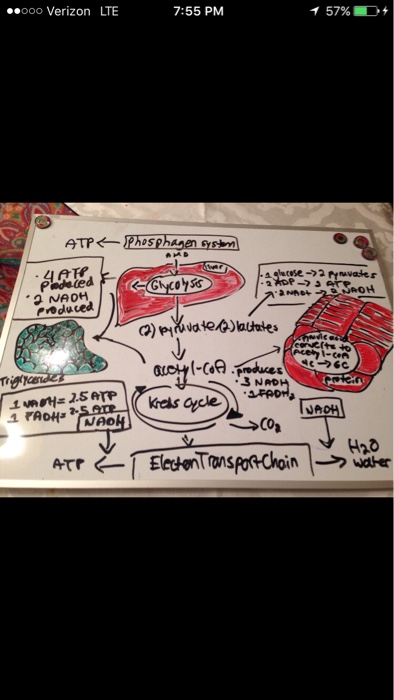 Verizon LTE 7:55 PM 57%
ATP ← Phosphagen system
AND
Liver
Glycolysis
• 4 ATP
Produced
• 2 NADH
produced
• 1 glucose → 2 pyruvates
• 2 ADP →
ATP
• 2 NAD+ → 2 NADH
(2) pyruvate (2) lactates
Triglycerides
acetyl-CoA
• produces
• 3 NADH
• 1 FADH2
converts to
acetyl-CoA
4C → 6C
protein
1 NADH = 2.5 ATP
1 FADH =
.5 ATP
NADH
Krebs cycle
→ CO2
NADH
ATP ← Electon Transport Chain → H2O
water